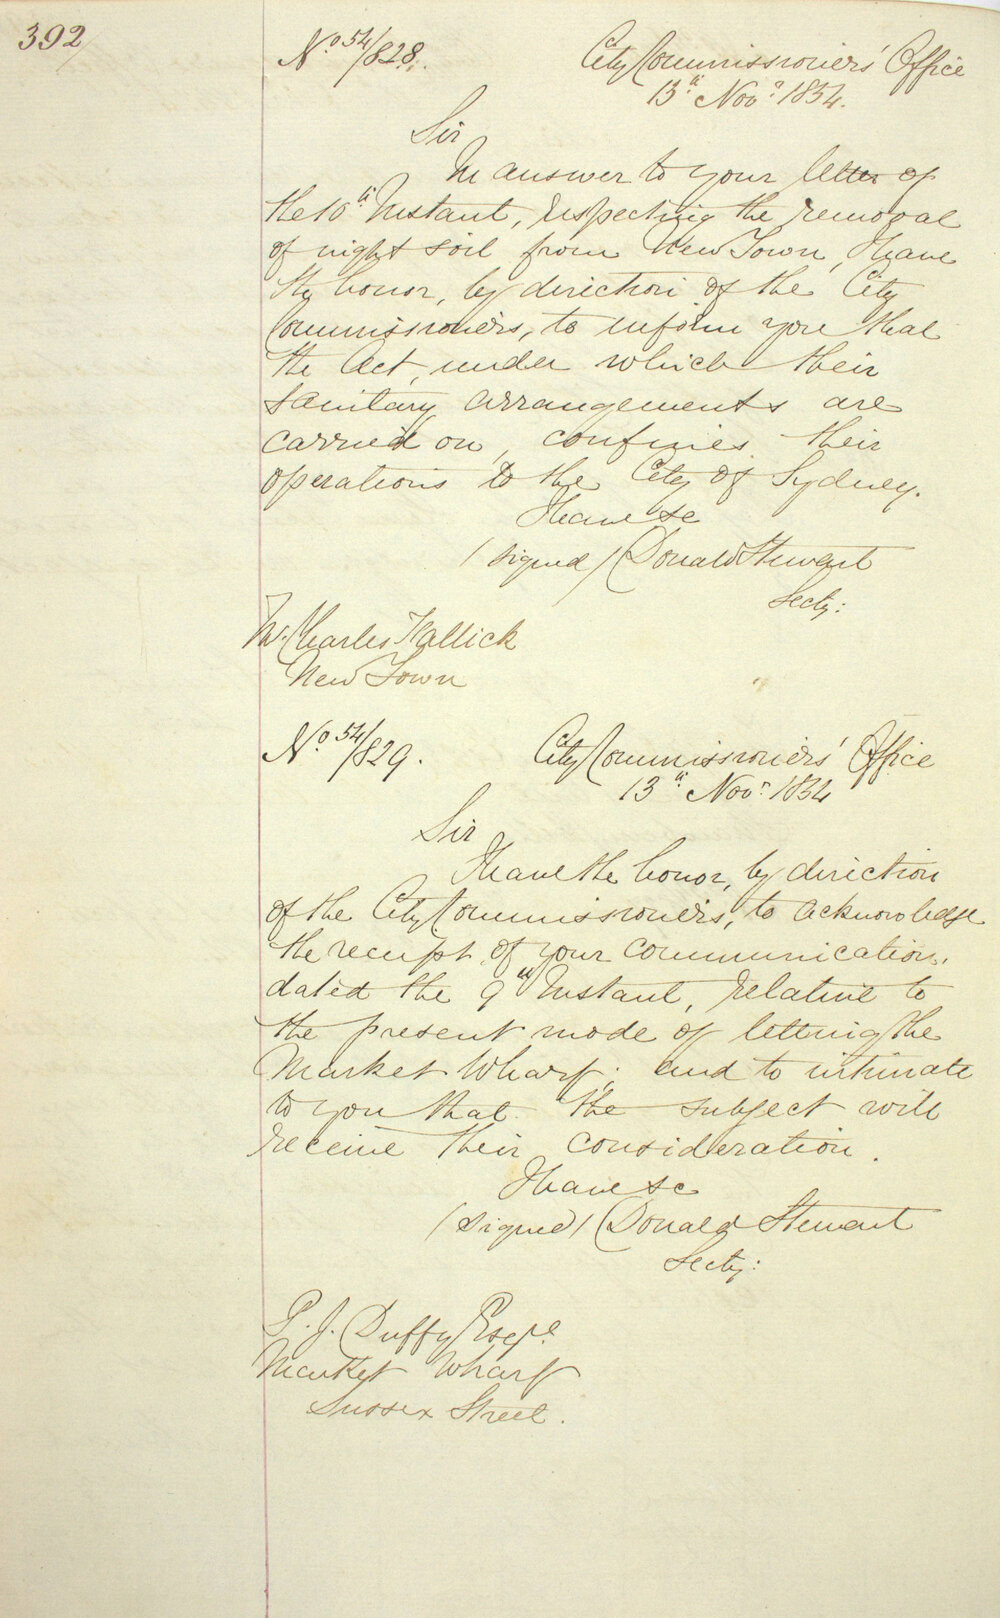 392
No 54/828.
City Commissioners' Office
13th Novr 1854.
Sir
In answer to your letter of
the 10th Instant, respecting the removal
of night soil from New Town, I have
the honor, by direction of the City
Commissioners, to inform you that
the Act, under which their
sanitary arrangements are
carried on, confines their
operations to the City of Sydney.
I have &c
(signed) Donald Stewart
Secty:
Mr. Charles Kallick
New Town
No. 54/829.
City Commissioners' Office
13th Novr 1854
Sir
I have the honor, by direction
of the City Commissioners, to acknowledge
the receipt of your communication,
dated the 9th Instant, relative to
the present mode of letting the
Market Wharf; and to intimate
to you that the subject will
receive their consideration.
I have &c
(signed) Donald Stewart
Secty:
P. J. Duffy Esqre.
Market Wharf
Sussex Street.